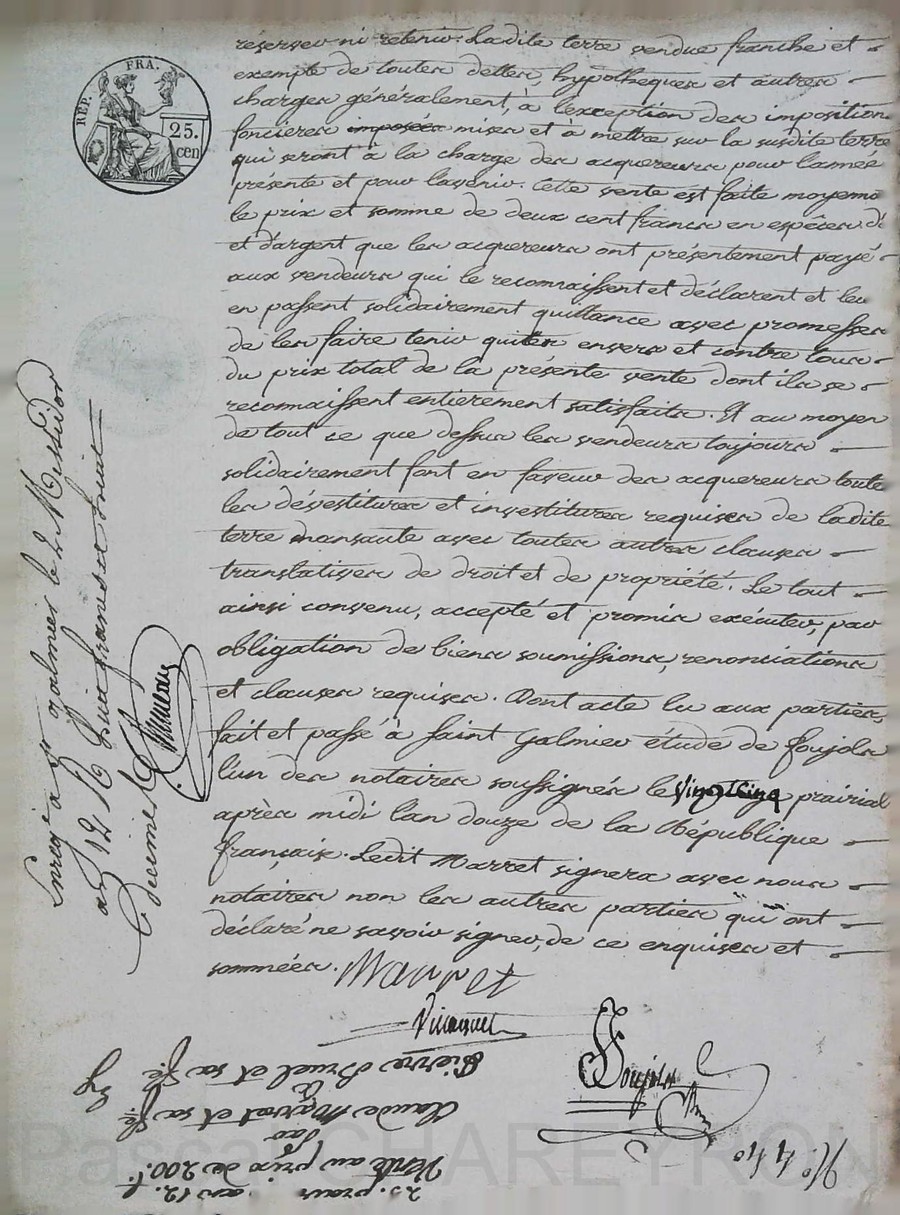 REP. FRA.
25.
cen
reserver ni retenir. Ladite terre vendue franche et
exempte de toutes dettes, hypotheques et autres
charges généralement, à l'exception des imposition
foncieres imposées mises et à mettre sur la susdite terre
qui seront à la charge des acquereurs pour l'année
présente et pour l'avenir. Cette vente est faite moyenn
le prix et somme de deux cent francs en espèces d'
et d'argent que les acquereurs ont présentement payé
aux vendeurs qui le reconnaissent et déclarent et leu
en passent solidairement quittance avec promesses
de les faire tenir quittes envers et contre tous
du prix total de la présente vente dont ils se
reconnaissent entierement satisfaits. Et au moyen
de tout ce que dessus les vendeurs toujours
solidairement font en faveur des acquereurs toute
les dévestitures et investitures requises de ladite
terre avec toutes autres clauses
translatives de droit et de propriété. Le tout
ainsi convenu, accepté et promis exécuter, par
obligation de biens soumissions, renonciations
et clauses requises. Dont acte lu aux parties,
fait et passé à Saint Galmier étude de Foujols
l'un des notaires soussignés le vingt cinq prairial
après midi l'an douze de la République
française. Ledit Marret signera avec nous
notaires non les autres parties qui ont
déclaré ne savoir signer, de ce enquises et
sommées. Marret
Foujols
Enregé à St galmier le 2 Messidor
an 12 R huit francs et huit
décimes
N° 440
25. prair an 12.
Vente au prix de 200 f.
par
Claude Marret et sa fe
à
Pierre Bruel et sa fe
Pascal CHAREYRON